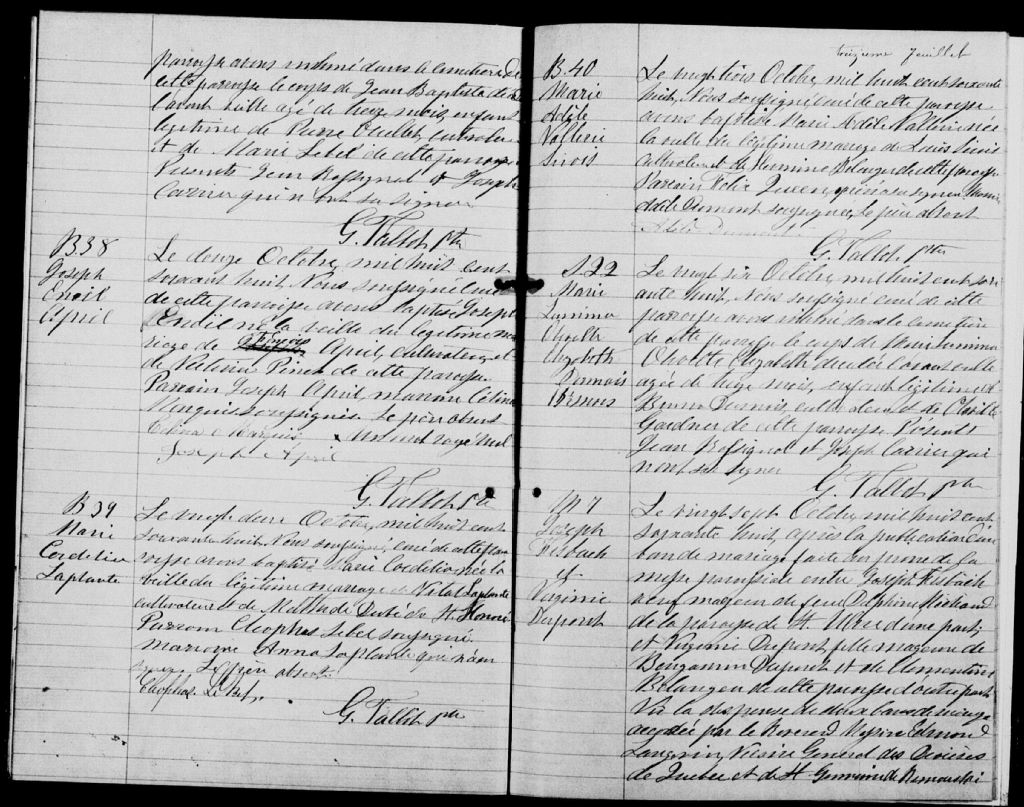 paroisse avons inhumé dans le cimetière de
cette paroisse le corps de Jean Baptiste décédé
l'avant veille agé de treize mois, enfant
légitime de Pierre Ouellet, cultivateur
et de Marie Lebel de cette paroisse
Présents Jean Rossignol et Joseph
Carrier qui n'ont su signer
G. Vallot ptre
B 38
Joseph
Emil
April
Le douze Octobre, mil huit cent
soixante huit. Nous soussigné curé
de cette paroisse avons baptisé Joseph
né la veille du légitime ma
riage de François April, cultivateur, et
de Pinet de cette paroisse.
Parrain Joseph April, marraine Célina
Marquis soussignés. Le père absent
Célina Marquis, un mot rayé nul
Joseph April
G. Vallot ptre
B 39
Marie
Cordélia
Laplante
Le vingt deux Octobre, mil huit cent
soixante huit. Nous soussigné, curé de cette pa
roisse avons baptisé Marie Cordélia née la
veille du légitime mariage de Vital Laplante
cultivateur et de Mathilde Dubé de St. Honoré
Parrain Cléophas Lebel soussigné
marraine Anna Laplante qui n'a su
signer. Le père absent.
Cléophas Lebel
G. Vallot ptre
feuillet
B. 40
Marie
Adèle
Vallerie
Sirois
Le vingt trois Octobre, mil huit cent soixante
huit, Nous soussigné curé de cette paroisse
avons baptisé Marie Adèle Vallerie née
la veille du légitime mariage de Louis Sirois
cultivateur et de Bélanger de cette paroisse
Parrain Félix qui n'a su signer, Marraine
Adèle Dumont soussignée, le père absent
Adèle Dumont
G. Vallot ptre
S. 22
Marie
Elizabeth
Le vingt six Octobre, mil huit cent soix
ante huit, Nous soussigné curé de cette
paroisse avons inhumé dans le cimetière
de cette paroisse le corps de Marie
Elizabeth décédée l'avant veille
agée de treize mois, enfant légitime de
cultivateur et de
Gardner de cette paroisse Présents
Jean Rossignol et Joseph Carrier qui
n'ont su signer
G. Vallot ptre
M 7
Joseph
et
Virginie
Dupont
Le vingt sept Octobre, mil huit cent
soixante huit, après la publication d'un
ban de mariage faite au prône de la
messe paroissiale entre Joseph
veuf majeur de feu Delphine Michaud
de la paroisse de St. d'une part,
et Virginie Dupont fille mineure de
Benjamin Dupont et de Clémentine
Bélanger de cette paroisse d'autre part
Vu la dispense de deux bans de mariage
accordée par le Révérend Messire Edmond
Langevin, Vicaire Général des Diocèses
de Québec et de St. Germain de Rimouski